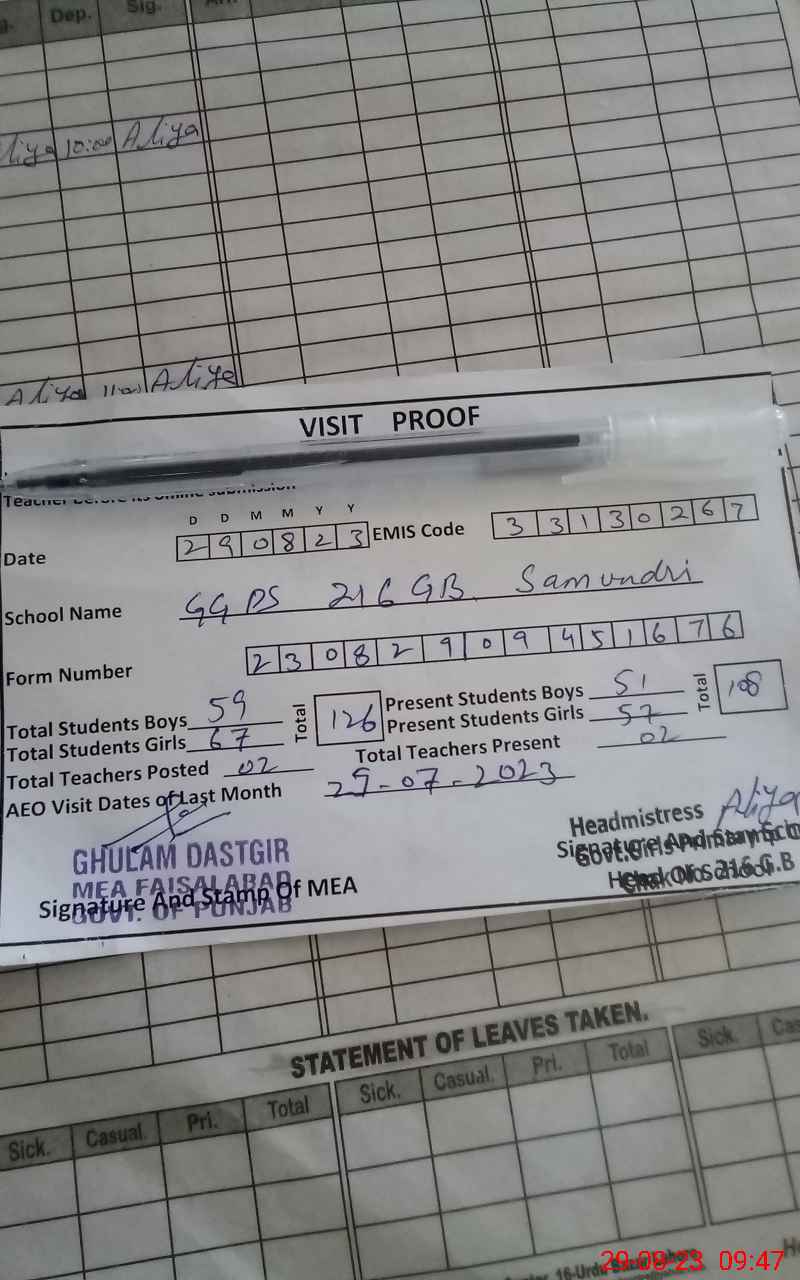 Dep. Sig.
10:00 Aliya
Aliya 11:00 Aliya
VISIT PROOF
D D M M Y Y
Date 2 9 0 8 2 3 EMIS Code 3 3 1 3 0 2 6 7
School Name GGPS 216 GB. Samundri
Form Number 2 3 0 8 2 9 0 9 4 5 1 6 7 6
Total Students Boys 59 Total 126 Present Students Boys 51 Total 108
Total Students Girls 67 Present Students Girls 57
Total Teachers Posted 02 Total Teachers Present 02
AEO Visit Dates of Last Month 29-07-2023
Headmistress Aliya
GHULAM DASTGIR
MEA FAISALABAD
GOVT. OF PUNJAB
Signature And Stamp Of MEA
STATEMENT OF LEAVES TAKEN.
Sick. Casual. Pri. Total Sick. Casual. Pri. Total Sick.
29-08-23 09:47